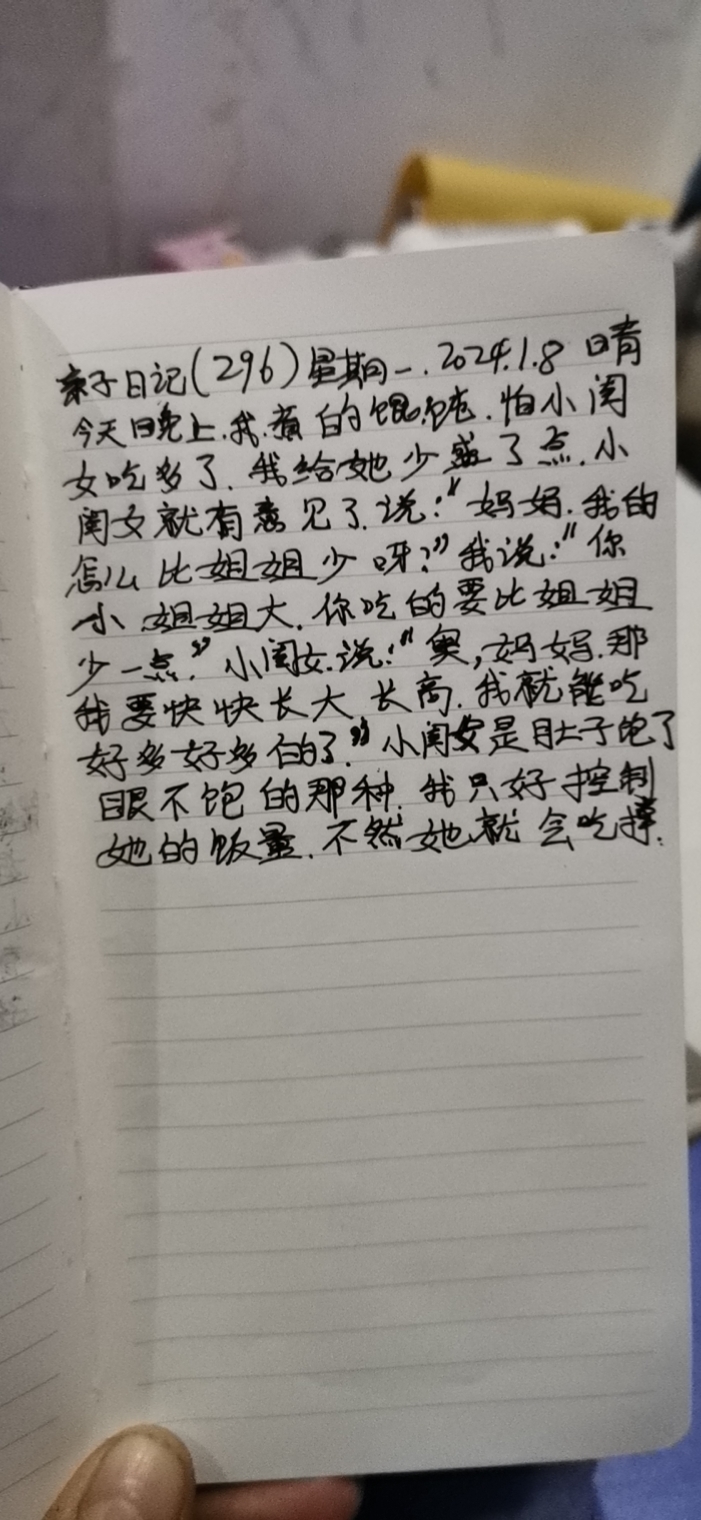 亲子日记(296)星期一.2024.1.8 晴
今天晚上.我.煮的馄饨.怕小闺
女吃多了.我给她少盛了点.小
闺女就有意见了.说:"妈妈.我的
怎么比姐姐少呀?"我说:"你
小.姐姐大.你吃的要比姐姐
少一点."小闺女.说:"奥,妈妈.那
我要快快长大.长高.我就能吃
好多好多的了."小闺女是肚子饱了
眼不饱的那种.我只好控制
她的饭量.不然她就会吃撑.